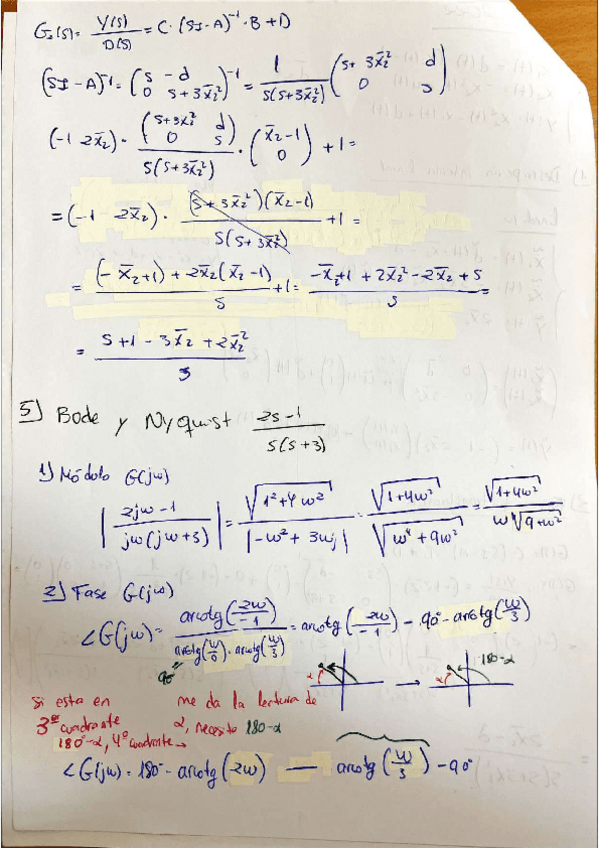 G₂(s) = Y(s)/D(s) = C·(sI-A)⁻¹·B+D
(sI-A)⁻¹ = (s -d; 0 s+3x̄₂²)⁻¹ = 1/(s(s+3x̄₂²)) (s+3x̄₂² d; 0 s)
(-1 2x̄₂)·(s+3x̄₂² d; 0 s)/(s(s+3x̄₂²))·(x̄₂-1; 0)+1=
=(-1 2x̄₂)·(s+3x̄₂²)(x̄₂-1)/(s(s+3x̄₂²))+1=
= ((-x̄₂+1)+2x̄₂(x̄₂-1))/s+1= (-x̄₂+1+2x̄₂²-2x̄₂+s)/s=
= (s+1-3x̄₂+2x̄₂²)/s
5) Bode y Nyquist (2s-1)/(s(s+3))
1) Módulo G(jω)
|(2jω-1)/(jω(jω+3))| = √(1²+4ω²)/|-ω²+3ωj| = √(1+4ω²)/√(ω⁴+9ω²) = √(1+4ω²)/(ω√(9+ω²))
2) Fase G(jω)
∠G(jω)= arctg(2ω/-1)/(arctg(ω/0)·arctg(ω/3)) = arctg(2ω/-1) - 90° - arctg(ω/3)
90°
α → α 180-α
Si esta en me da la lectura de
3er cuadrante α, necesito 180-α
180°-α, 4º cuadrante →
∠G(jω)=180°-arctg(2ω) — arctg(ω/3) - 90°